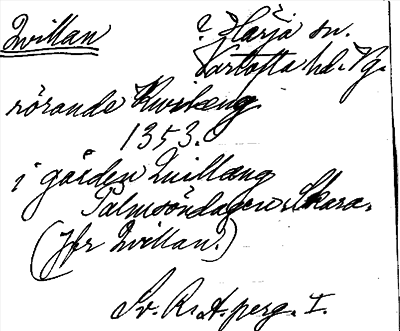 Qvillan ? Härja sn.
Vartofta hd. Vg.
rörande Kvikeng
1353.
i gården Quillæng
Palmsöndagen. Skara.
(Jfr Qvillan.)
Sv. R. A. perg. I.